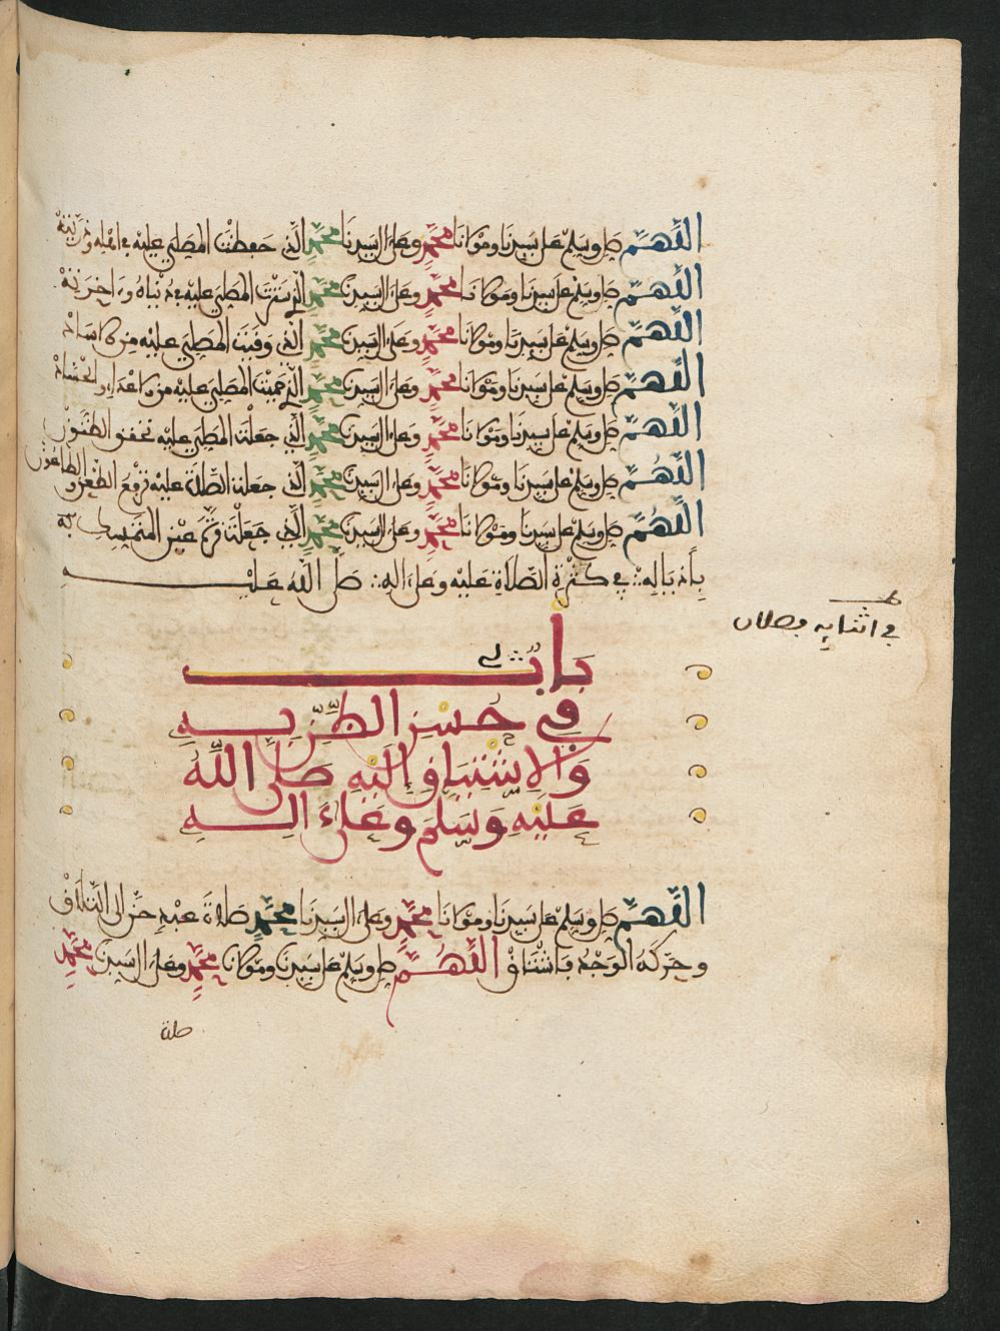 اللهم صل وسلم على سيدنا ومولانا محمد وعلى آل سيدنا محمد الذي حفظت المصلي عليه في أهله وذريته
اللهم صل وسلم على سيدنا ومولانا محمد وعلى آل سيدنا محمد الذي سترت المصلي عليه في دنياه وآخرته
اللهم صل وسلم على سيدنا ومولانا محمد وعلى آل سيدنا محمد الذي وقيت المصلي عليه من
اللهم صل وسلم على سيدنا ومولانا محمد وعلى آل سيدنا محمد الذي حميت المصلي عليه من
اللهم صل وسلم على سيدنا ومولانا محمد وعلى آل سيدنا محمد الذي جعلت المصلي عليه الظنون
اللهم صل وسلم على سيدنا ومولانا محمد وعلى آل سيدنا محمد الذي جعلت الصلاة عليه ترفع الطعن والطاعون
اللهم صل وسلم على سيدنا ومولانا محمد وعلى آل سيدنا محمد الذي جعلت قرة عين المتمسك به
بأذياله في كثرة الصلاة عليه وعلى آله صلى الله عليه
في
باب
في حسن الطرب به
والاشتياق إليه صلى الله
عليه وسلم وعلى آله
اللهم صل وسلم على سيدنا ومولانا محمد وعلى آل سيدنا محمد صلاة عبد حن إلى التلاق
وحركه الوجد فاشتاق اللهم صل وسلم على سيدنا ومولانا محمد وعلى آل سيدنا محمد
صلاة